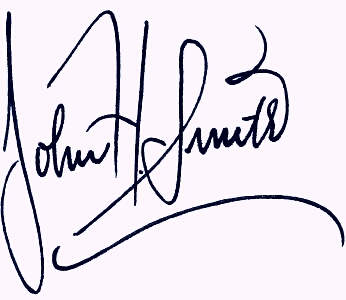 John H. Smith